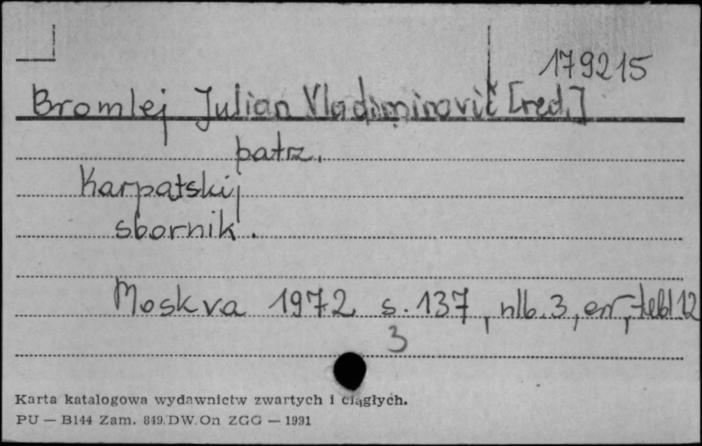 179215
Bromlej Julian Vladimirovič [red.]
patrz.
Karpatskij
sbornik.
Moskva 1972 s. 137, nlb. 3, err, tabl 12
3
Karta katalogowa wydawnictw zwartych i ciągłych.
PU — B144 Zam. 849 DW.On ZGG — 1991